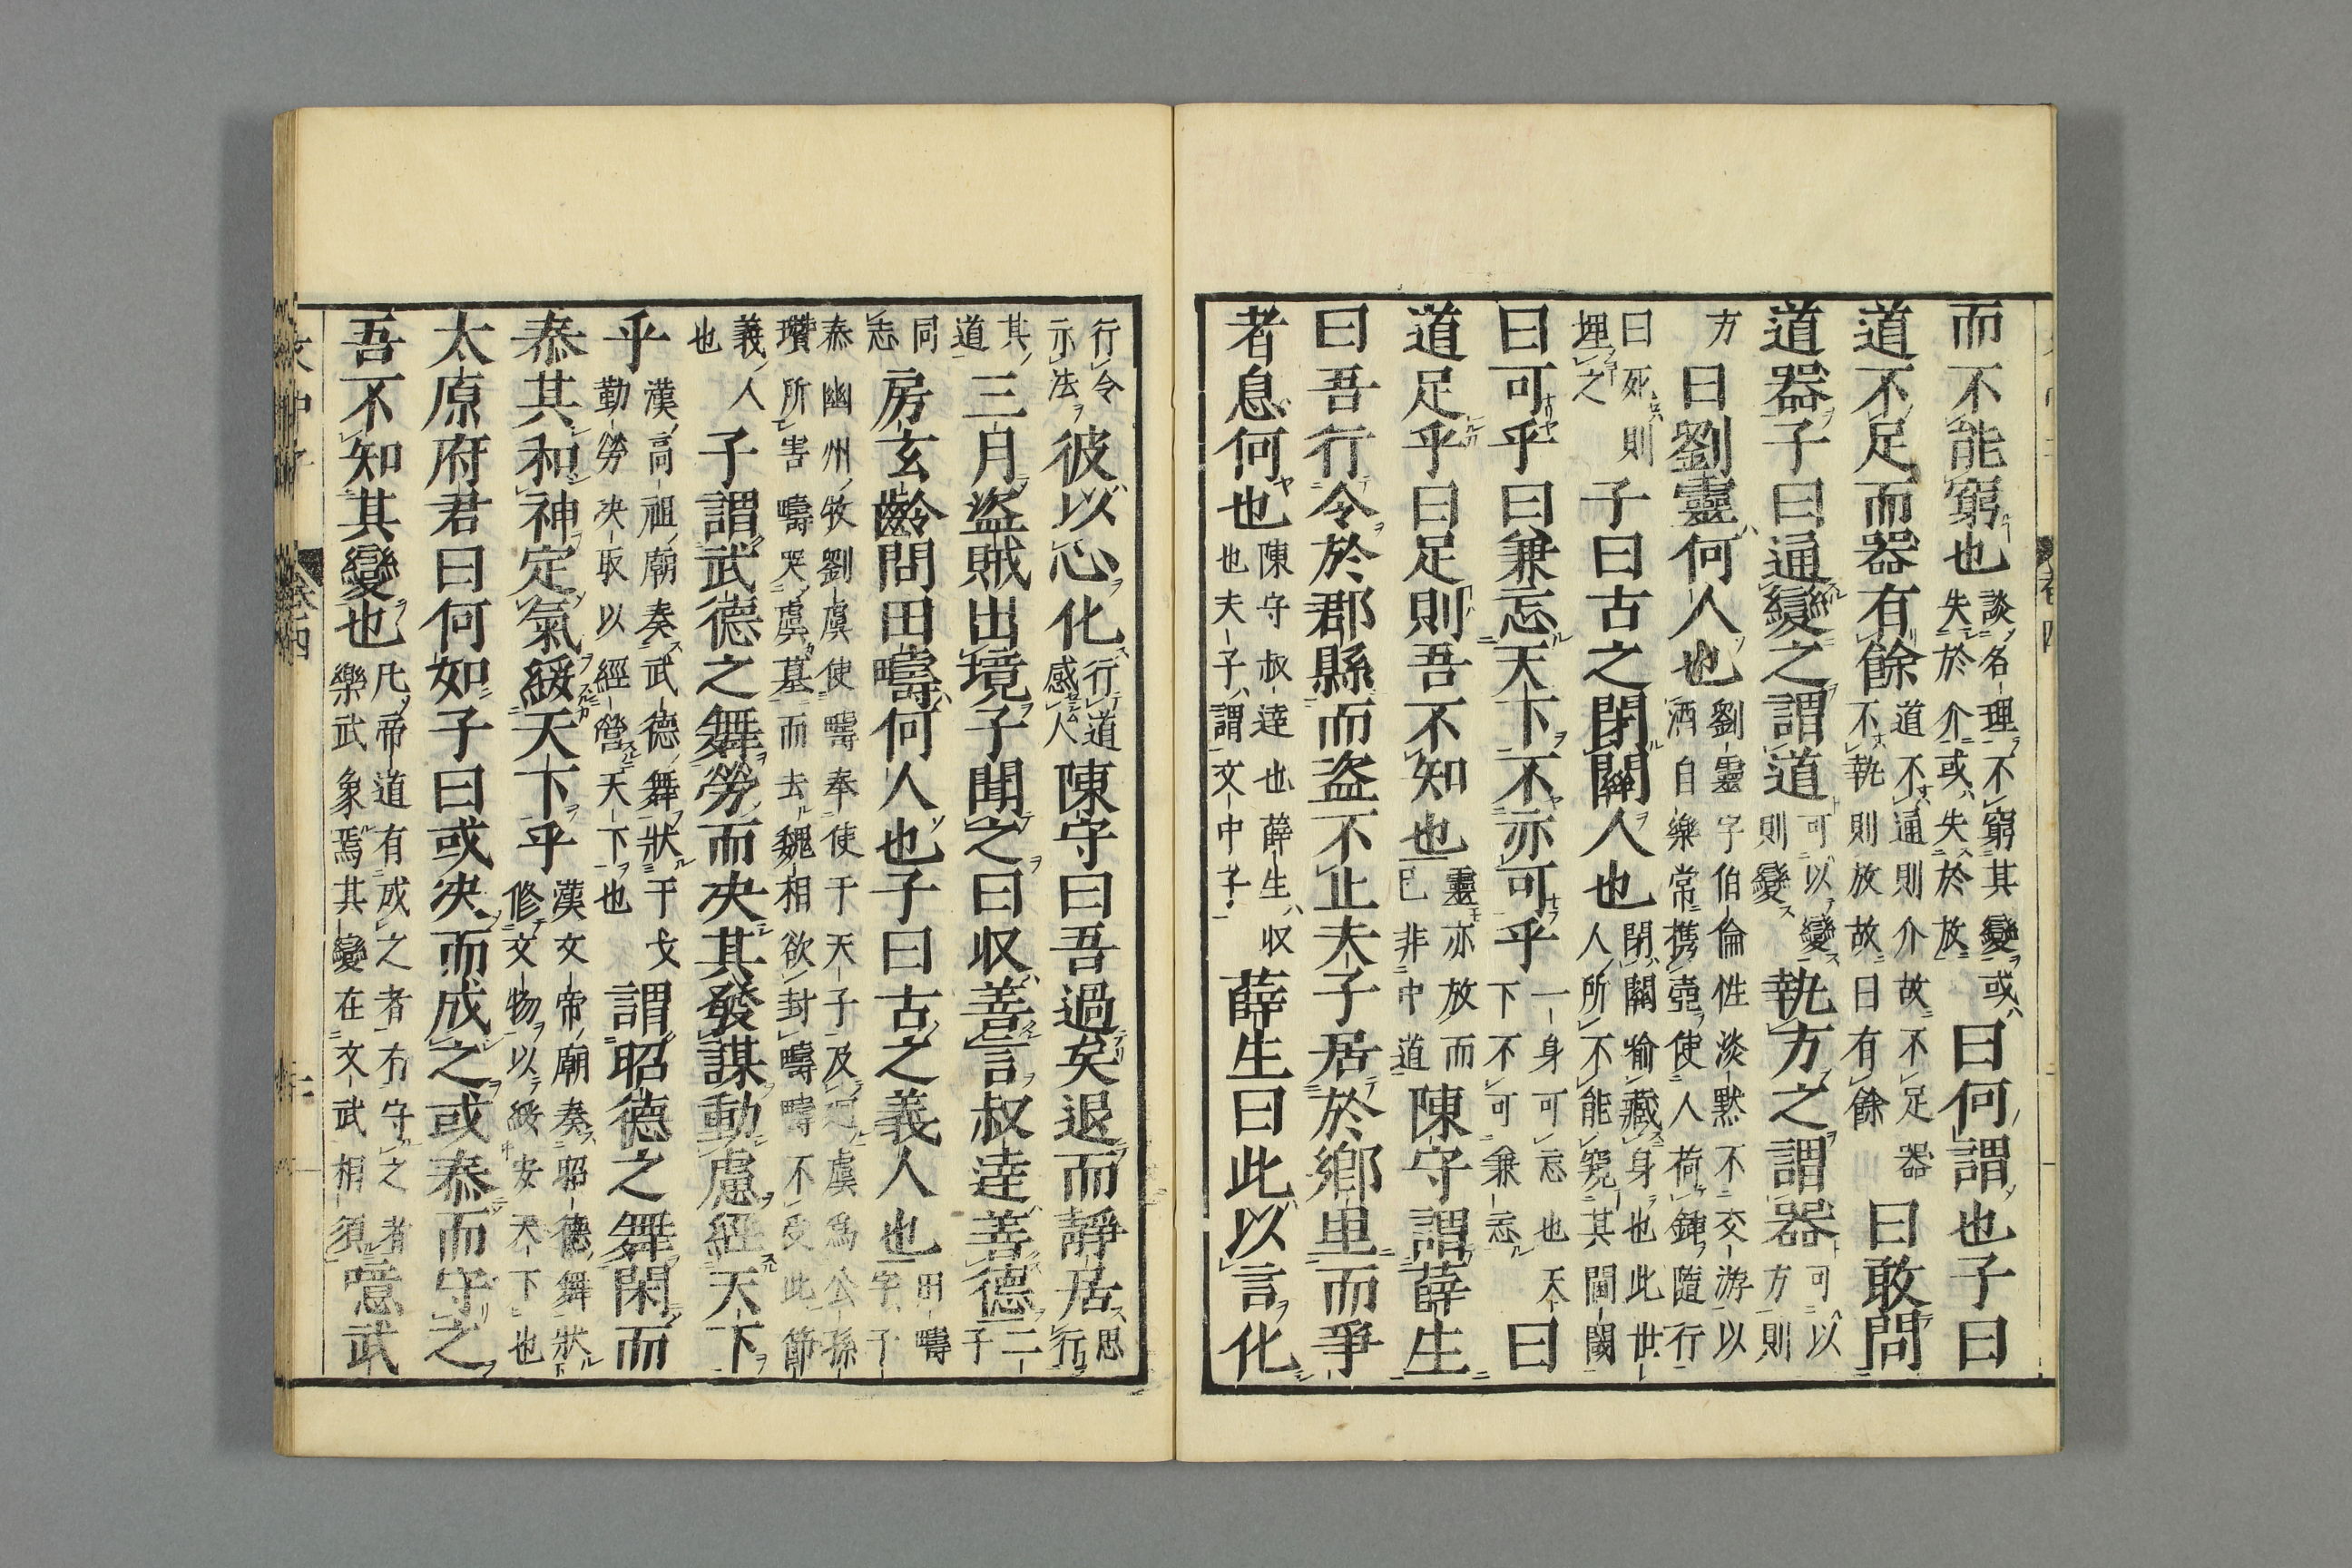 而不能窮也談名理不窮其變或失於介或失於放曰何謂也子曰
道不足而器有餘道不通則介故不足器不執則放故曰有餘曰敢問
道器子曰通變之謂道可以變則變執方之謂器可以方則
方曰劉靈何人也劉靈字伯倫性淡黙不交游以酒自樂常携壺使人荷鍤隨行
曰死則埋之子曰古之閉關人也閉關喻藏身也此世人所不能窺其閫閾
曰可乎曰兼忘天下不亦可乎一身可忘也天下不可兼忘曰
道足乎曰足則吾不知也靈亦放而已非中道陳守謂薛生
曰吾行令於郡縣而盗不止夫子居於鄉里而爭
者息何也陳守叔逹也薛生收也夫子謂文中子薛生曰此以言化
行令示法彼以心化行道感人陳守曰吾過矣退而靜居思行
其道三月盗賊出境子聞之曰収善言叔逹善德二子
同志房玄齡問田疇何人也子曰古之義人也田疇字子
泰幽州牧劉虞使疇奉使于天子及還虞爲公孫瓚所害疇哭虞墓而去魏相欲封疇疇不受此節
義人也子謂武德之舞勞而决其發謀動慮經天下
乎漢高祖廟奏武德舞狀干戈勤勞决取以經營天下也謂昭德之舞閑而
泰其和神定氣緩天下乎漢文帝廟奏昭德舞狀修文物以綏安天下也
太原府君曰何如子曰或决而成之或泰而守之
吾不知其變也凡帝道有成之者有守之者樂武象焉其變在文武相須噫武
卷四